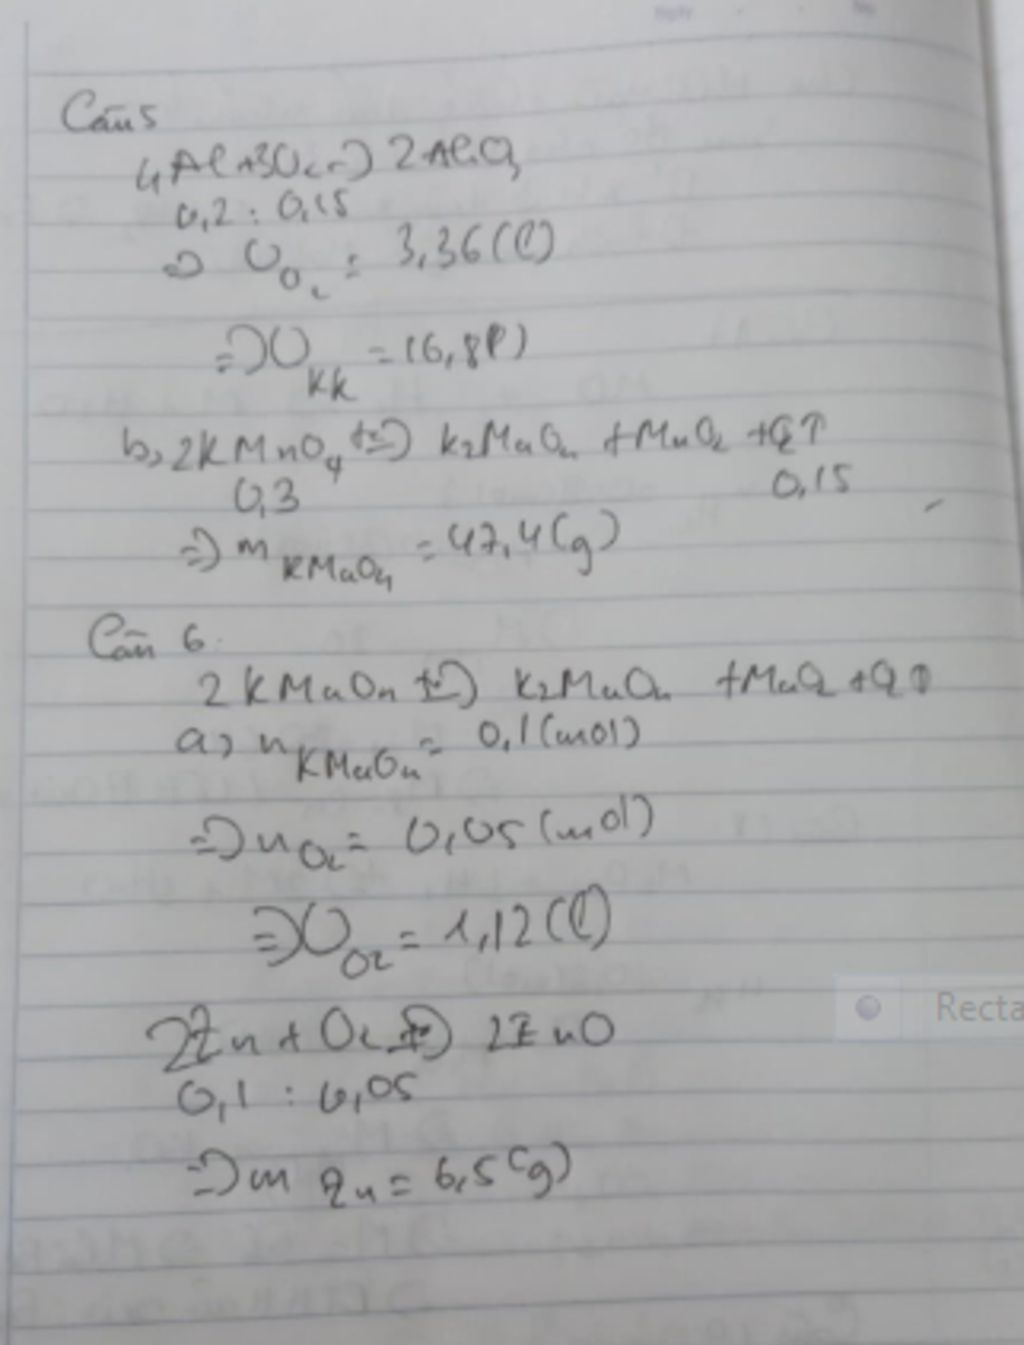 Câu 5
4Al + 3O₂ → 2Al₂O₃
0,2 : 0,15
⇒ V O₂ = 3,36 (l)
⇒ V KK = 16,8 l)
b, 2KMnO₄ t⇒ K₂MnO₄ + MnO₂ + O₂↑
0,3 0,15
⇒ m KMnO₄ = 47,4 (g)
Câu 6
2KMnO₄ t⇒ K₂MnO₄ + MnO₂ + O₂↑
a, n KMnO₄ = 0,1 (mol)
⇒ n O₂ = 0,05 (mol)
⇒ V O₂ = 1,12 (l)
2Zn + O₂ t⇒ 2ZnO
0,1 : 0,05
⇒ m Zn = 6,5 (g)
Recta